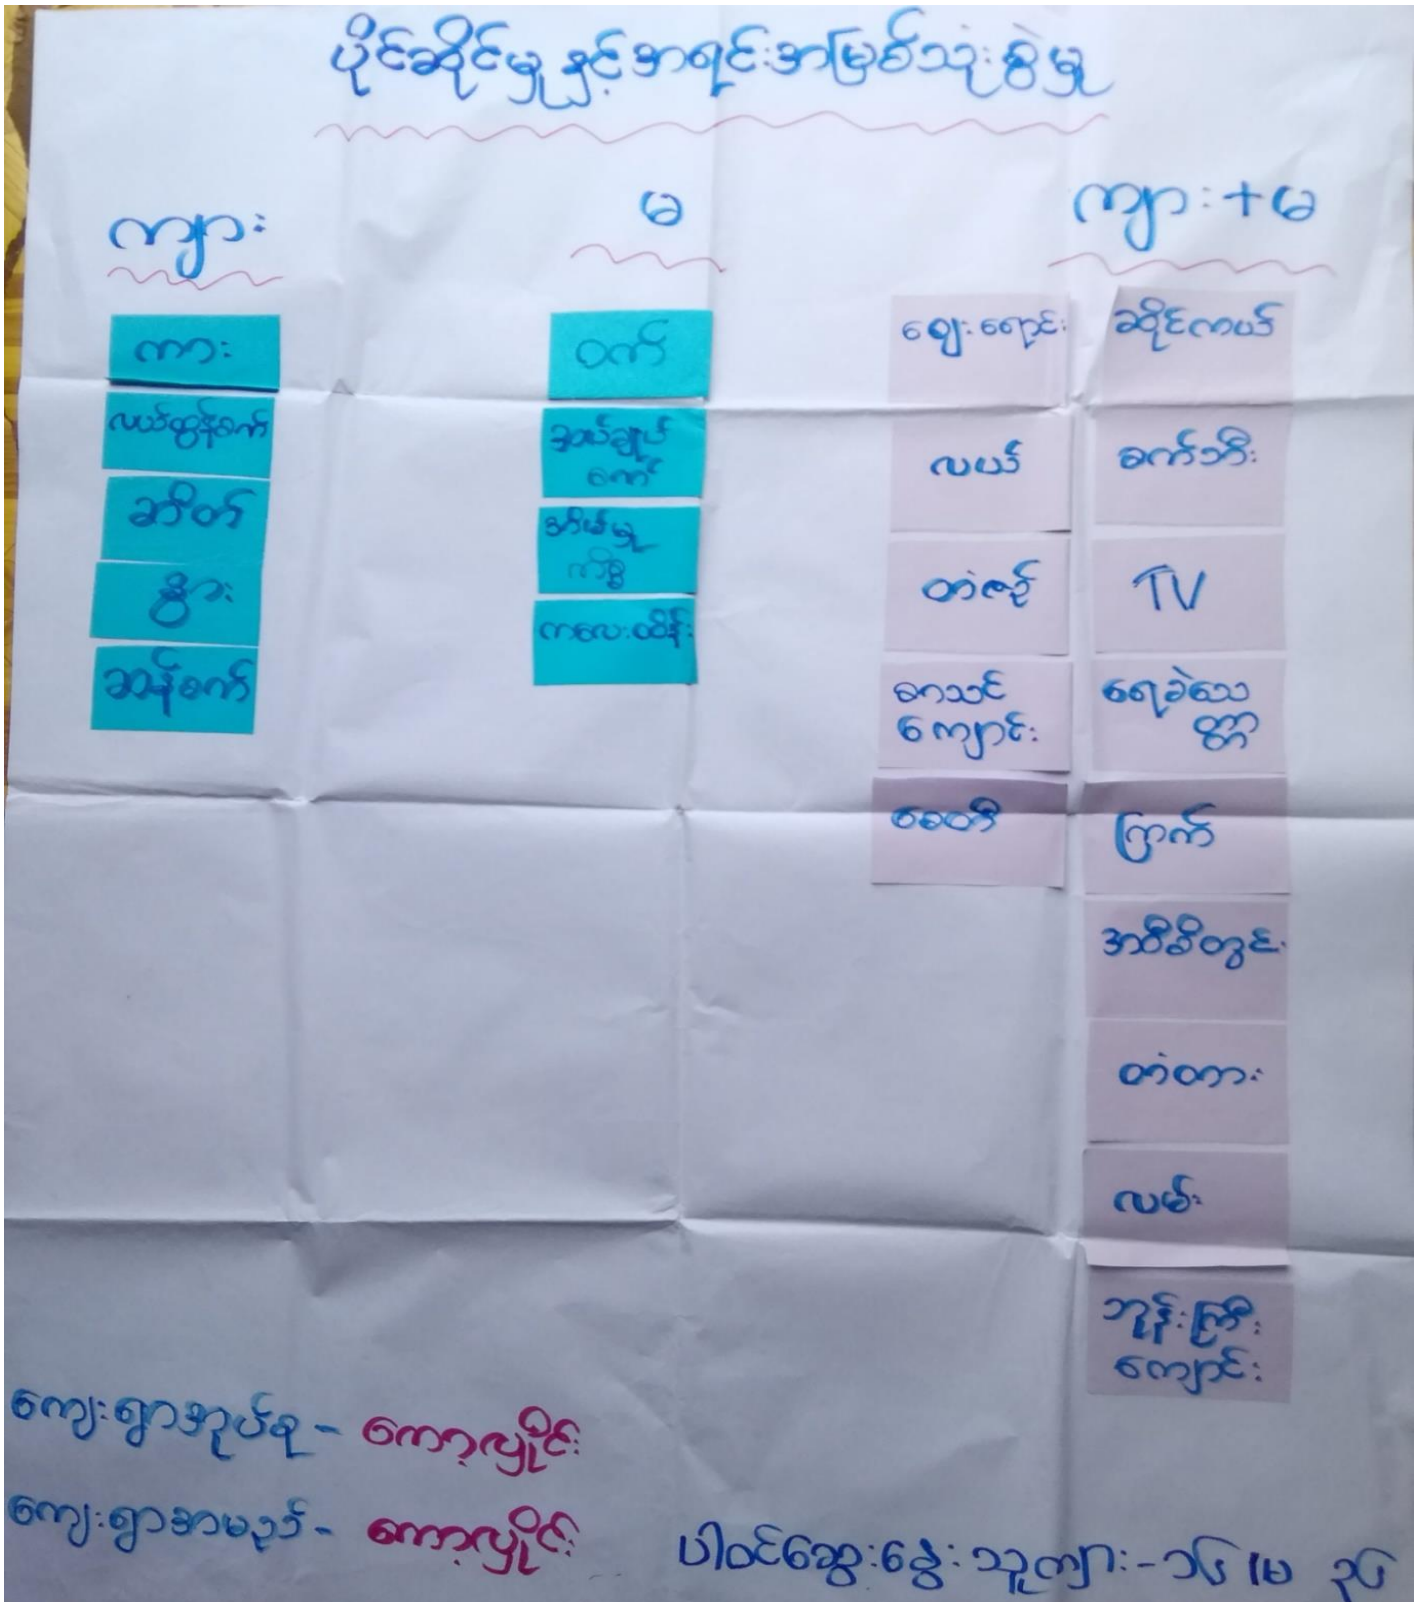 ပိုင်ဆိုင်မှုနှင့်အရင်းအမြစ်သုံးစွဲမှု
ကျား
ကား
လယ်ထွန်စက်
ဆိတ်
နွား
ဆန်စက်
မ
ဝက်
အပ်ချုပ်
စက်
အိမ်မှု
ကိစ္စ
ကလေးထိန်း
ကျား+မ
ဈေးရောင်း
လယ်
တံငှဉ်
စာသင်
ကျောင်း
စေတီ
ဆိုင်ကယ်
စက်ဘီး
TV
ရေခဲသေ
တ္တာ
ကြက်
အဝီစိတွင်း
တံတား
လမ်း
ဘုန်းကြီး
ကျောင်း
ကျေးရွာအုပ်စု - ကော့လှိုင်း
ကျေးရွာအမည် - ကော့လှိုင်း
ပါဝင်ဆွေးနွေးသူကျား - ၁၆ /မ ၃၆